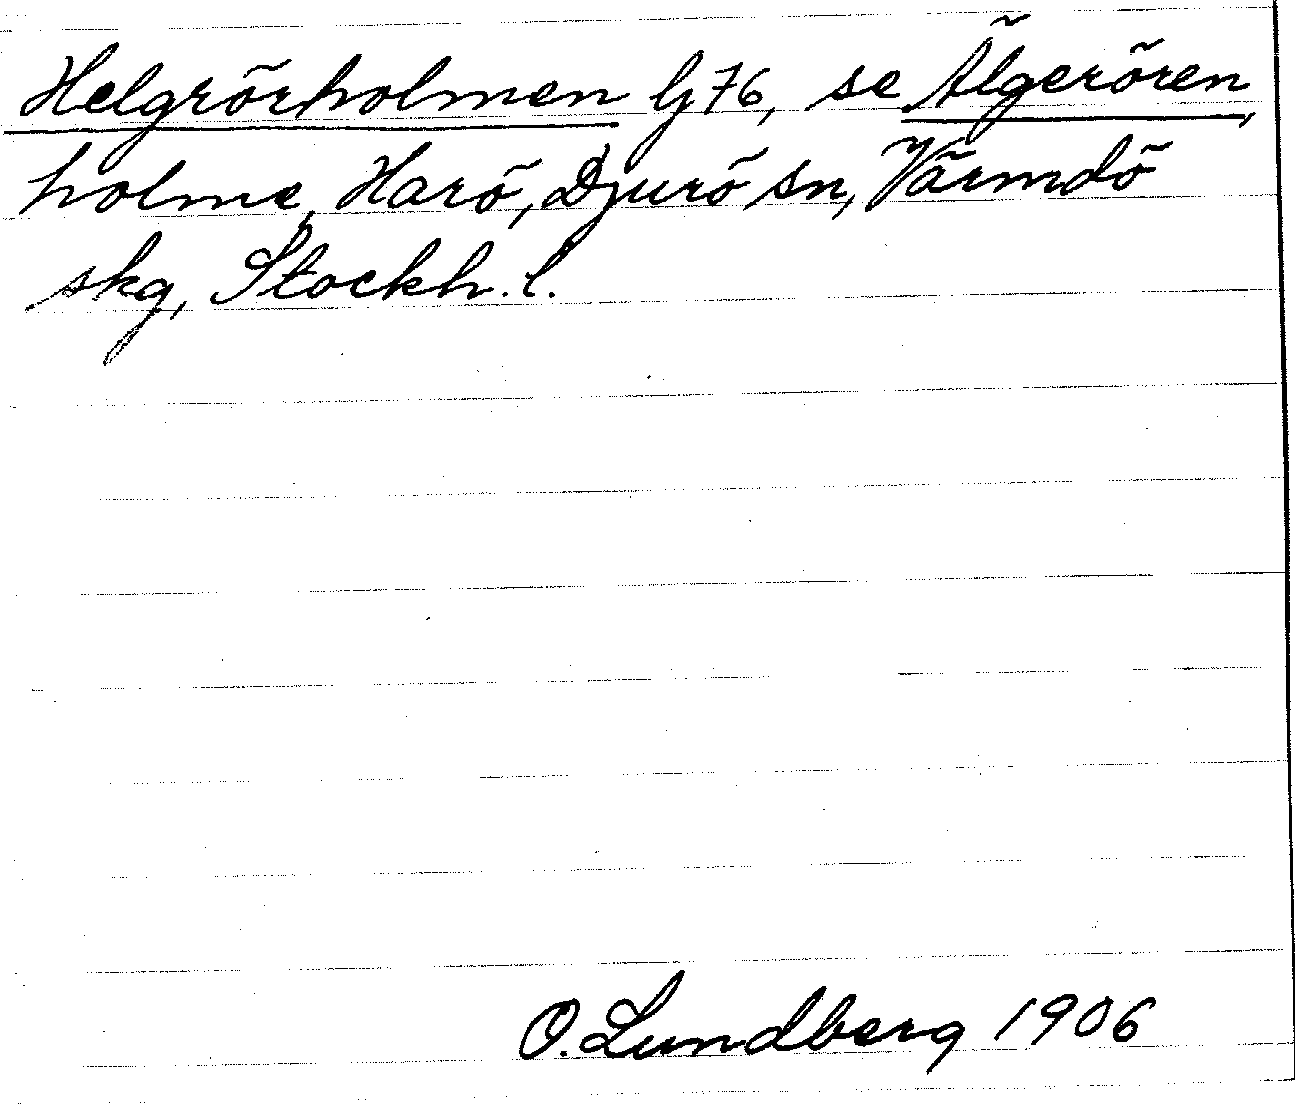 Helgrörholmen G 76, se Älgerören,
holme, Harö, Djurö sn, Värmdö
skg, Stockh. l.
O. Lundberg 1906